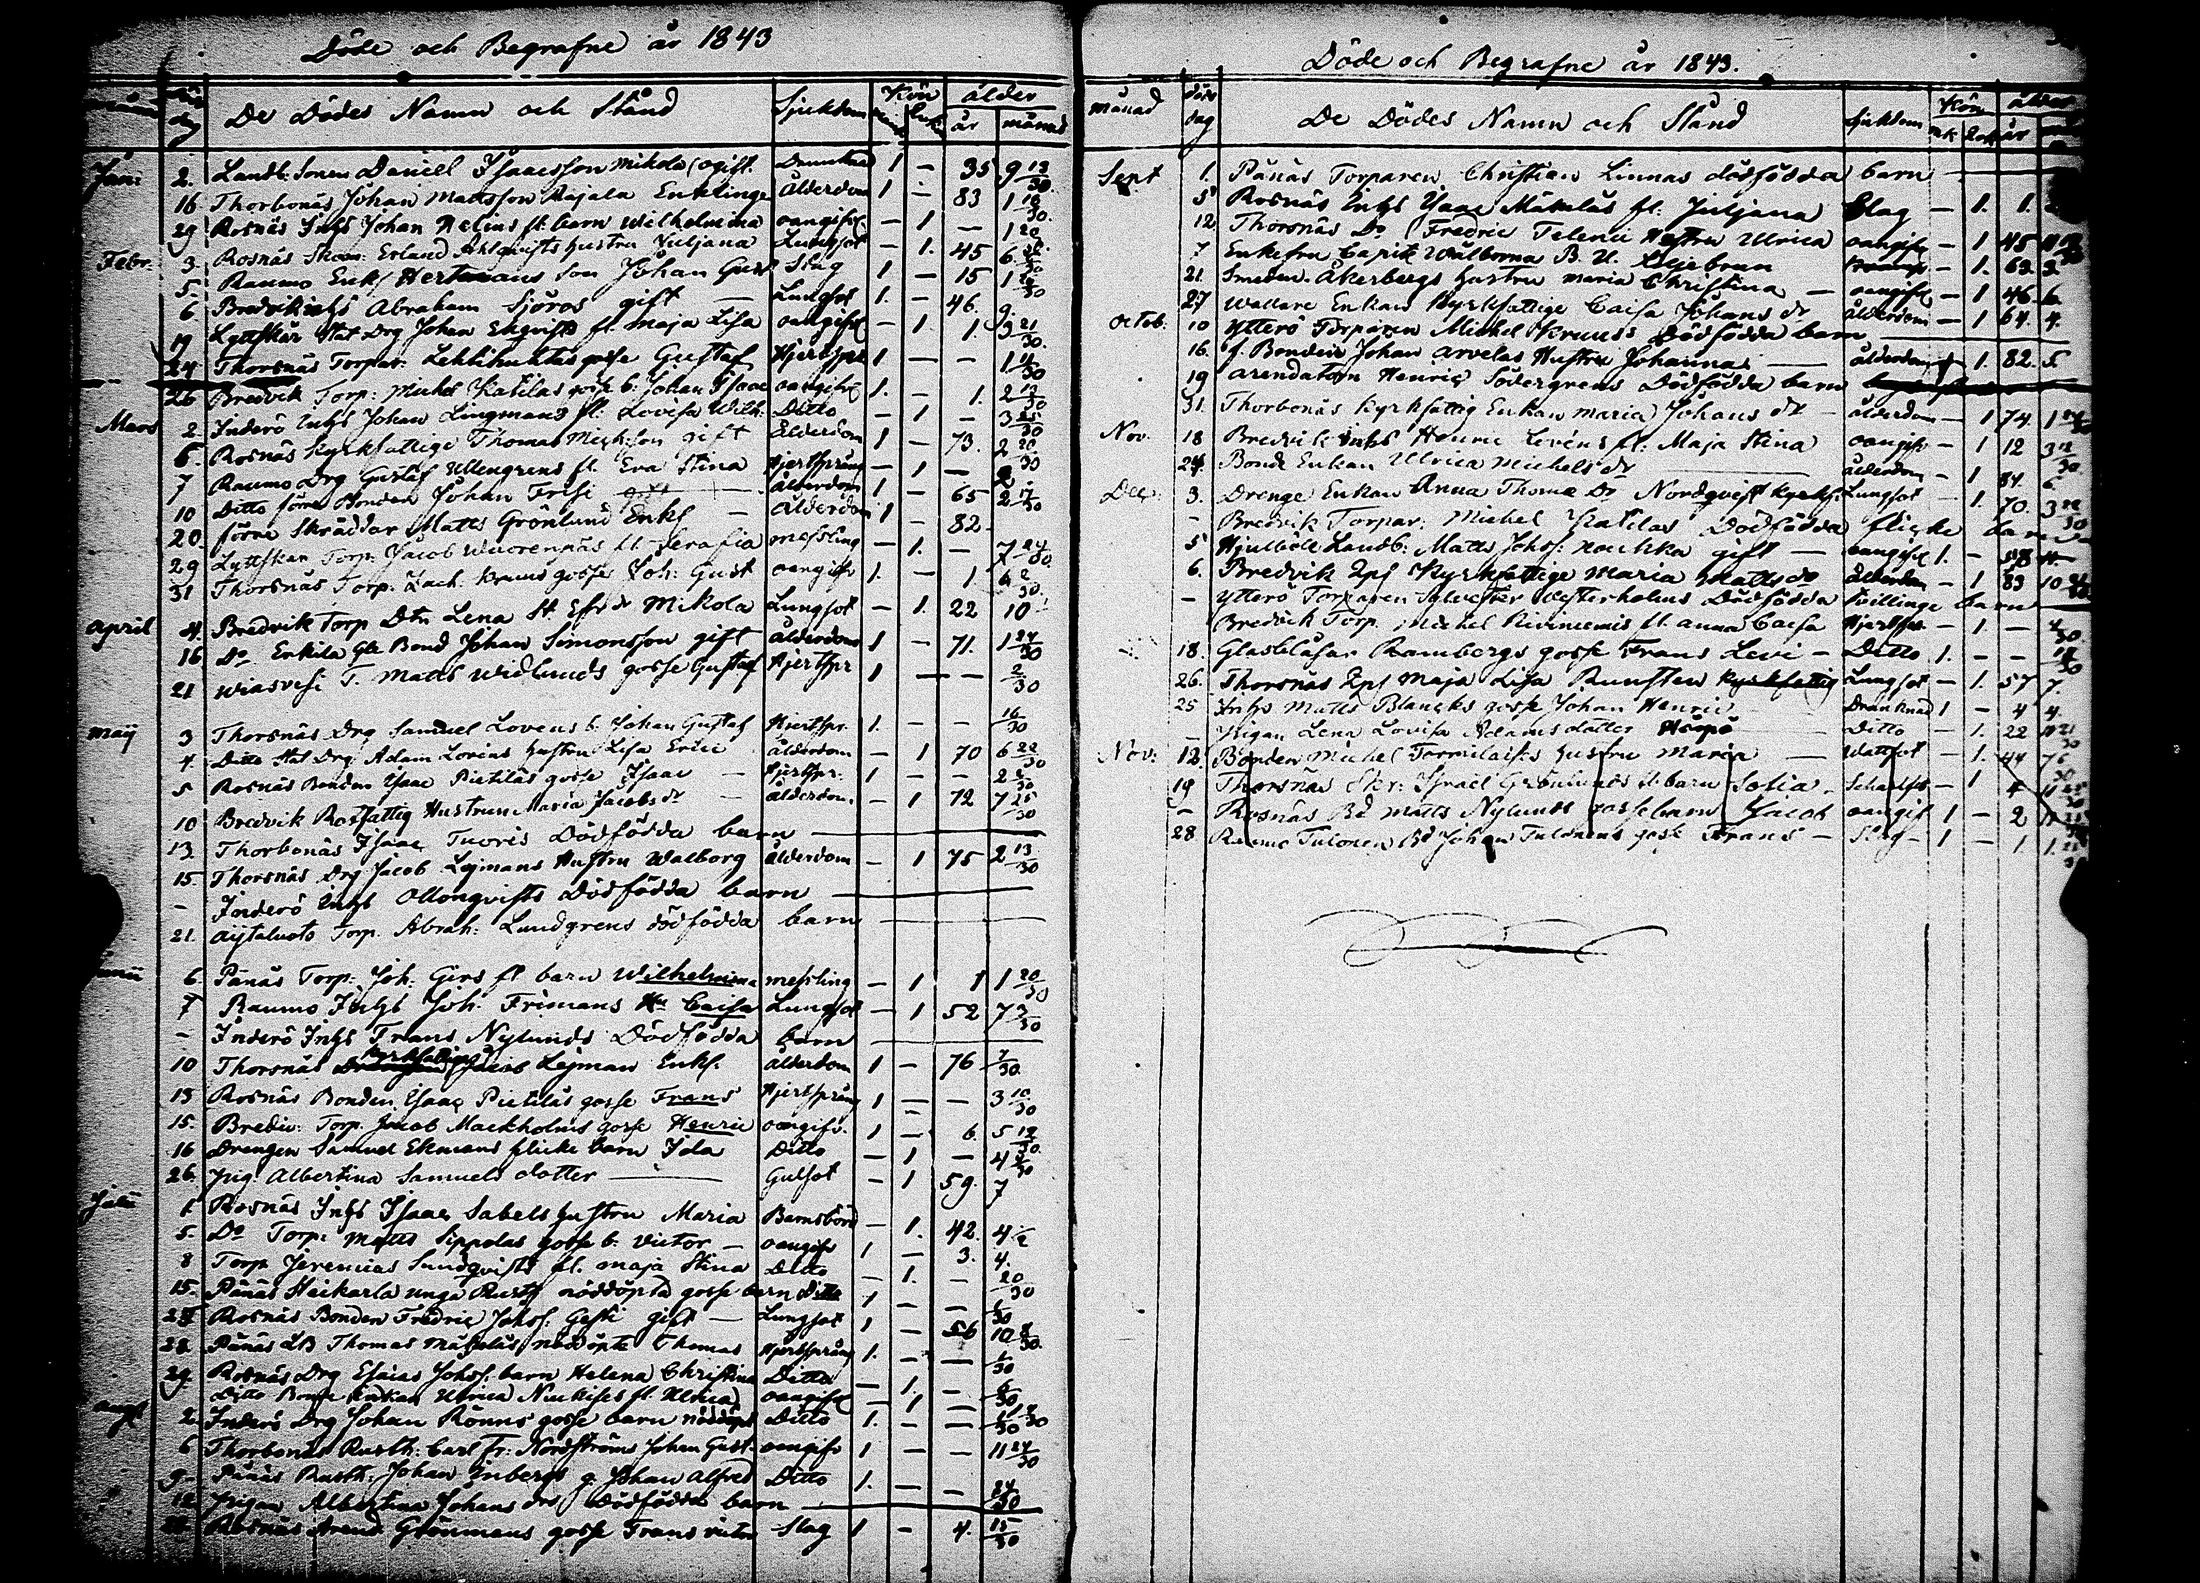 Döde och Begrafne år 1843
Dag De Dödes Namn och Stånd Sjukdom Kön ålder
år månad
Jan: 2. Landb: Sonen Daniel Isaacsson Mikola ogift. Drunknad 1 – 35 9 13/30
16 Thorbonäs Johan Mattsson Rajala Enklinge Ålderdom 1 – 83 1 18/30
29 Rosnäs Inhs Johan Helins fl. barn Wilhelmina oangifvl – 1 – 1 20/30
Febr: 3. Rosnäs Skom: Erland Ahlqvists hustru Juljana Lungsot – 1. 45 6
5. Raumo Enkl Hertmans son Johan Gust Slag 1 – 15 1
6 Bredvik inhs Abraham Sjöros gift – Lungsot 1. – 46. 9.
19 Lyttskär Stat Drg Johan Ekqvists fl. Maja Lisa oangifvl – 1. 1. 3 21/30
24 Thorsnäs Torpar: Lehtihuhtas gosse Gustaf Hjertspr 1 – – 1 4/30
26 Bredvik Torp: Michel Katilas gosse b: Johan Isaac oangifvl 1. – 1. 2 13/30
Mars 2. Inderö Inhs Johan Lingmans fl. Lovisa Wilh: Ditto – 1 – 3 25/30
5. Rosnäs Kyrkfattige Thomas Mich:son gift Ålderdom 1 – 73. 2 20/30
7 Raumo Drg Gustaf Ullengrens fl. Eva Stina Hjertspräng – 1 – 2
10 Ditto förra Bonden Johan Frisi – Ålderdom 1 – 65 2 17/30
20. förra Skräddar Matts Grönlund Enkl – Ålderdom 1 – 82.
29 Lyttskär Torp: Jacob Wuorenpäs fl. Serafia messling – 1. – 7 24/30
31 Thorsnäs Torp: Zach. Kruus gosse Joh: Gust oangifv 1. – 1. 6 2/30
April 4. Bredvik Torp Dtr Lena St. Efrdr Mikola Lungsot – 1. 22 10
16 Do Enkila Gle Bond Johan Simonsson gift Ålderdom 1 – 71. 1 24/30
21 Wiasvesi T. Matts Widlunds gosse Gustaf Hjertspr 1 – – 2/30
Maij 3 Thorsnäs Drg Samuel Lovens b. Johan Gustaf Hjertspr. 1. – – 16/30
4. Ditto Stat Drg Adam Lovins hustru Lisa Ericі Ålderdom – 1 70 6 22/30
5 Rosnäs Bonden Isaac Pietiläs gosse Isaac – Hjertspr. 1 – – 2
10 Bredvik Rotfattig Hustrun Maria Jacobs dr – Ålderdom. – 1 72 7 25/30
13. Thorbonäs Isaac Tuoris Dödfödda barn
15. Thorsnäs Drg Jacob Lejmans Hustru Walborg Ålderdom – 1 75 2 13/30
– Inderö Inhs Ollonqvists Dödfödda barn
21. Äijtaluoto Torp. Abrah: Lundgrens dödfödda barn
Junii 6. Pänäs Torp: Joh: Girs fl barn Wilhelmina messling – 1 1 1 20/30
7 Raumo Inhs Joh. Frimans Hu Caisa Lungsot – 1 52 7 3/30
– Inderö Inhs Frans Nylunds Dödfödda barn
10 Thorsnäs Kyrkfattige Jacob Lejman Enkl. Ålderdom 1 – 76 7/30
13 Rosnäs Bonden Isaac Pietiläs gosse Frans Hjertspräng 1 – – 3 10/30
15. Bredv: Torp. Jacob Mackholms gosse Henric oangifv. 1 – 6. 5 19/30
16 Drengen Samuel Ekmans flicke barn Ida Ditto – 1 – 4
26. Pig. Albertina Samuels dotter Gulsot – 1 59. 7
Julii 1. Rosnäs Inhs Isaac Sabels hustru Maria Barnsbörd – 1. 42. 4
5. Do Torp: Matts Sippolas gosse b: Victor – oangifv 1 – 3. 4.
8 Torp Jeremias Sundqvists fl. Maja Stina Ditto – 1. – 20/30
15. Pänäs Heikarla unga Rusth nöddöpta gosse barn Ditto 1 – –
24. Rosnäs Bonden Fredric Johss: Gesti gift – Lungsot 1 – 56 10 8/30
28. Pänäs LB Thomas Mäkeläs nöddöpte Thomas Hjertspräng 1. – – 1/30
29. Rosnäs Drg Esaias Johss. barn Helena Christina Ditto – 1. – 6/30
Ditto Bonde Enkan Ulrica Niukises fl. Ulrica oangifvl – 1 –
Augs 2. Inderö Drg Johan Rönns gosse barn nöddöpt Ditto 1. – –
6 Thorbonäs Rusth: Carl Fr: Nordströms Johan Gust. oangifv 1 – – 11 27/30
9. Pänäs Rusth: Johan Inbergs g. Johan Alfred Ditto 1. – – 24/30
12 Pigan Albertina Johans drs Dödfödda barn
Rosnäs Arend Grönmans gosse Frans Victor Slag 1 – 4. 15/30
Döde och Begrafne år 1843.
Månad döds dag De Dödes Namn och Stånd Sjukdom Kön ålder
mk Qvk år
Sept 1. Pänäs Torparen Christian Linnas dödfödda barn
5 Rosnäs Inhs Isaac Mäkeläs fl: Juljana Slag – 1. 1.
12 Thorsnäs Do Fredric Telenii Hustru Ulrica oangifvl – 1 45 11
7 Enkefru Capit: Walborna B. U. Liljebrun – 1. 63. 3.
21. Smeden Åkerbergs hustru Maria Christina – oangifvl – 1 46. 6.
27 Wallare Enkan Kyrkfattige Caisa Johans dr Ålderdom – 1 64. 4.
Octob. 10 Ytterö Torparen Michel Kruuss Dödfödda barn
16. f. Bonden Johan Arvelas Hustru Johanna Ålderdom 1 82. 5.
19 Arendatorn Henric Södergrens Dödfödda barn
31. Thorbonäs Kyrkfattig Enkan Maria Johans dr – Ålderdom – 1 74. 1
Nov. 18 Bredvik Inhs Henric Levens fl. Maja Stina oangifv – 1 12 3
24. Bonde Enkan Ulrica Michels dr Ålderdom – 1 84. 6
Dec: 3. Drenge Enkan Anna Thoma Dr Nordqvist Kyrkf. Lungsot – 1. 70. 3
– Bredvik Torpar: Michel Katilas Dödfödda flicke barn
5 Hjulböle Landb: Matts Johss: Noukka gift – oangifvl 1. – 58 11
6. Bredvik Qps Kyrkfattige Maria Matts dr Ålderdom – 1 83 10
– Ytterö Torparen Sylvester Westerholms Dödfödda Tvillinge barn
Bredvik Torp. Michel Riviniemis fl. Anna Caisa Hjertspr. – 1. – 4/30
18. Glasblåsar Rambergs gosse Frans Levi – Ditto 1. – –
26. Thorsnäs Qps Maja Lisa Runsten Kyrkfattig Lungsot – 1. 57 7.
25 Inhs Matts Blancks gosse Johan Henric Drunknad 1 – 4 4.
– Pigan Lena Lovisa Adams dotter Ditto – 1. 22
Nov: 12. Bonden Michel Tarmilas hustru Maria – Wattsot – 1. 44
19 Thorsnäs Skr: Israel Grönlunds fl. barn Sofia – – 1 4
– Rosnäs Bd Matts Nylunds gosse barn Jacob oangif 1 – 2
28. Raumo Tulonen Bd Johan Tulonens gosse Frans – Slag – 1 – 1 1.